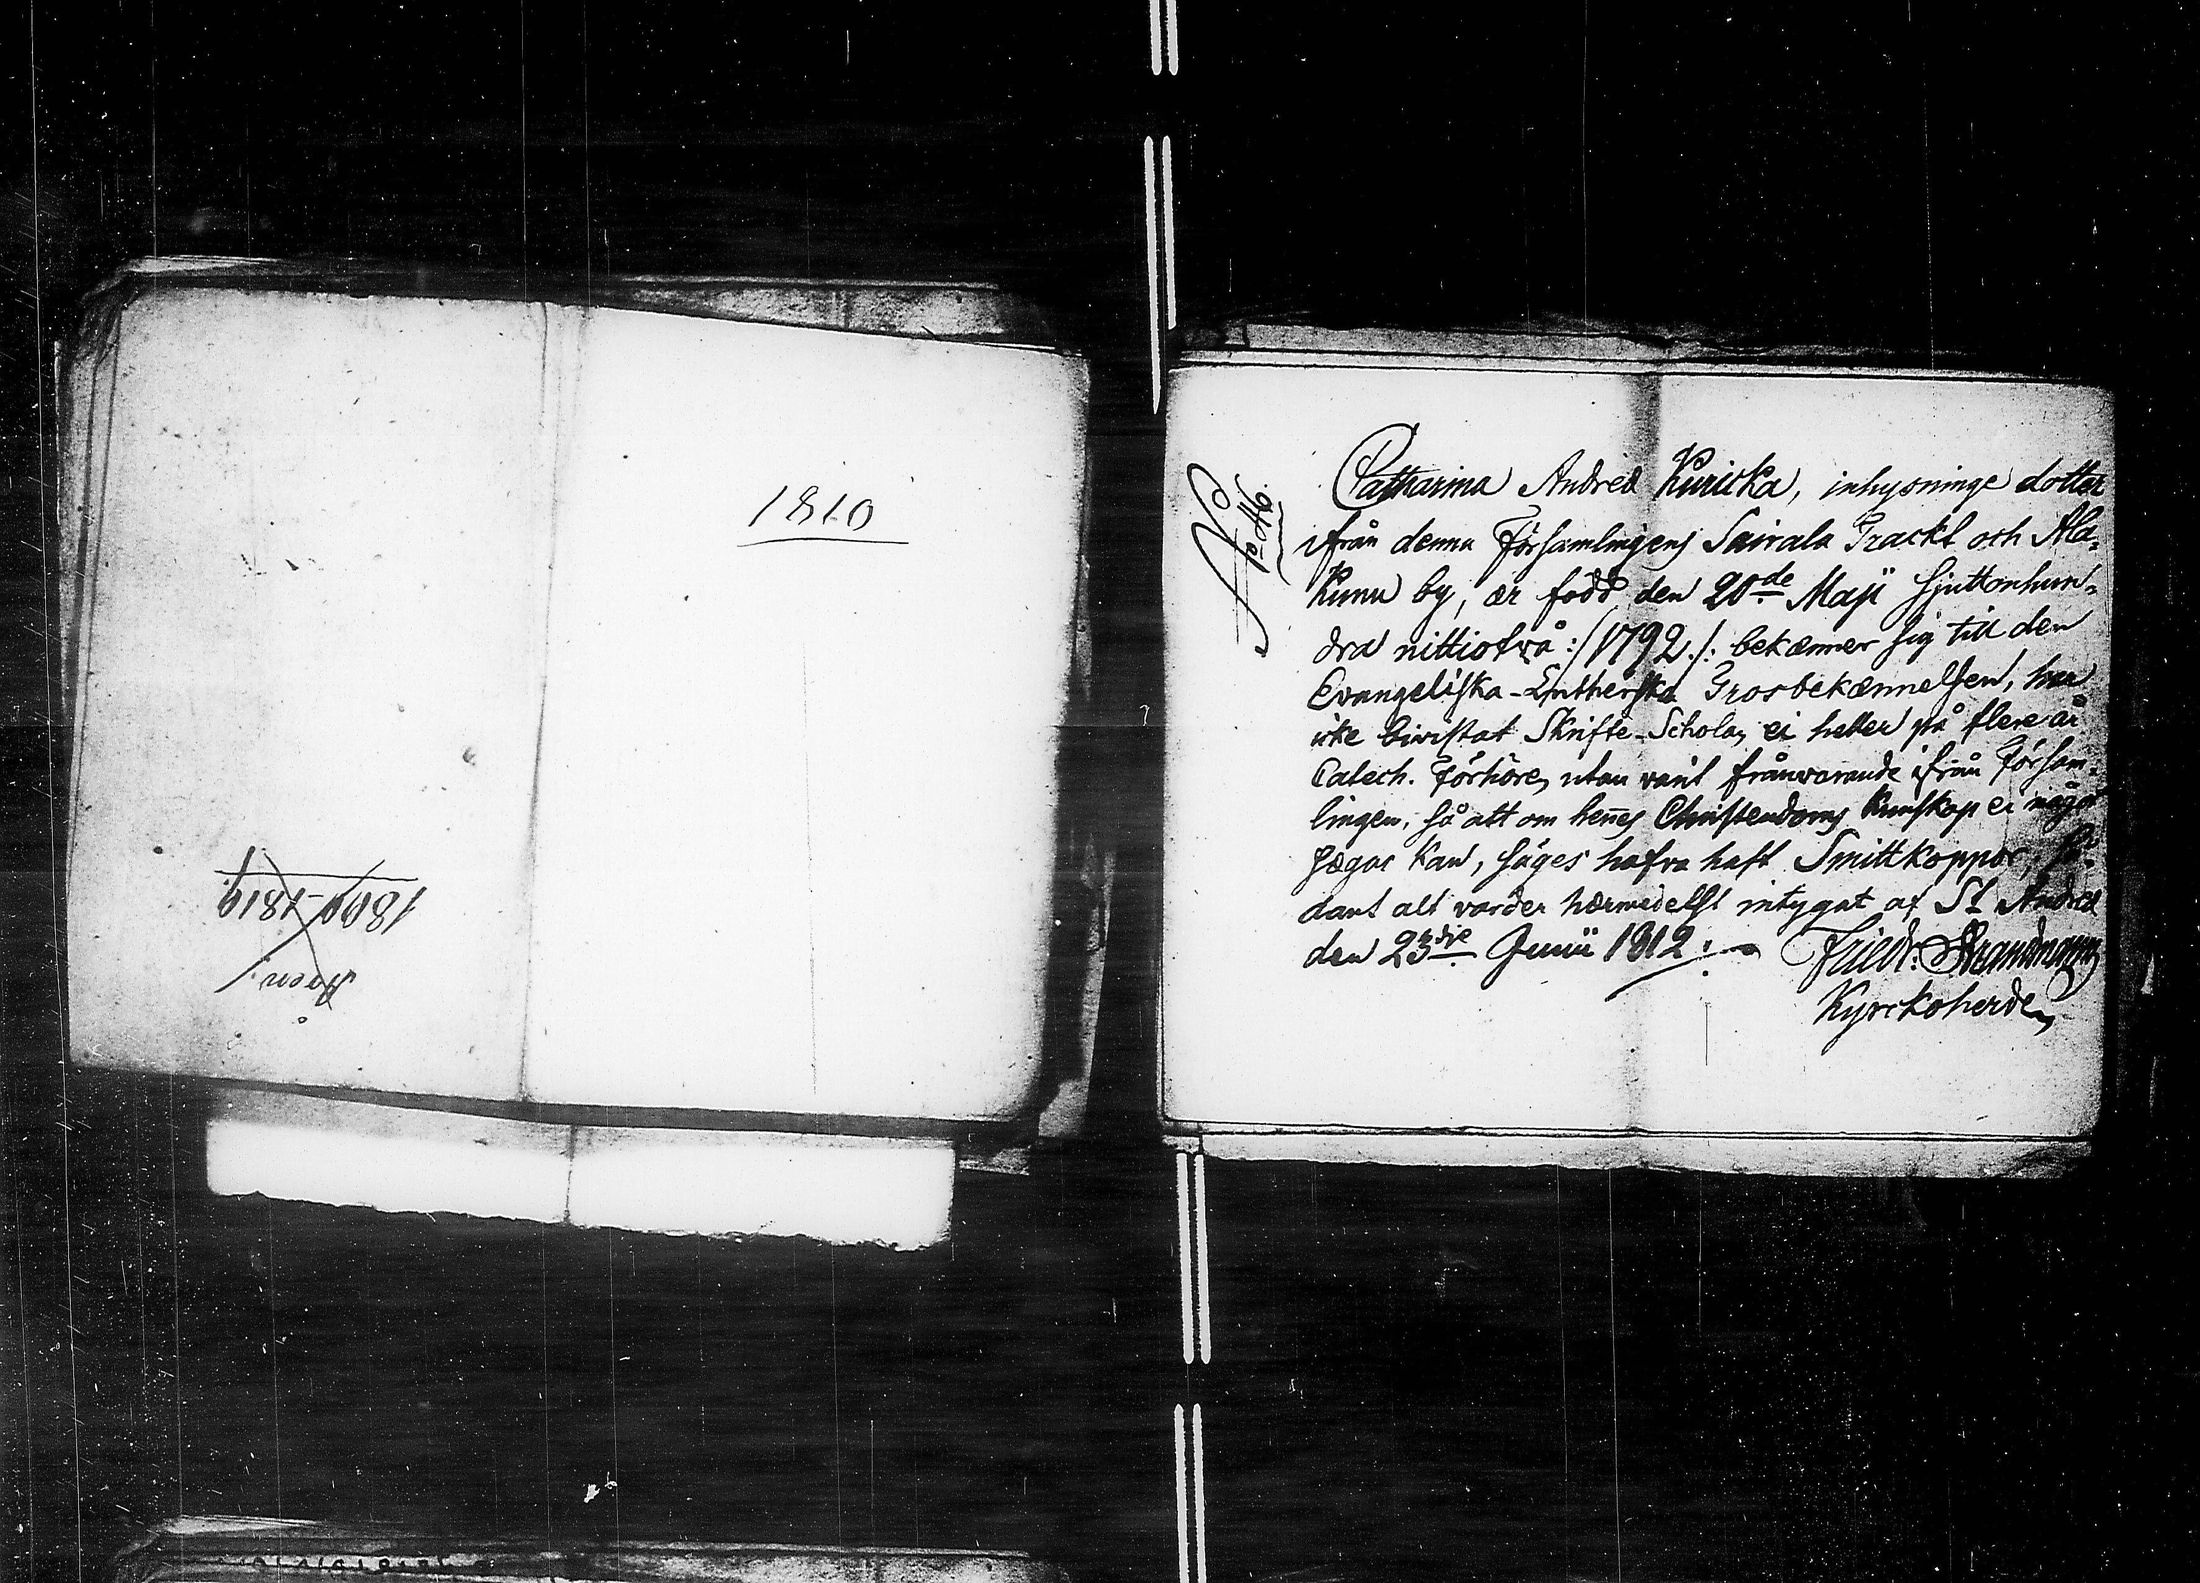 1810
1809-1819.
No 46.
Catharina Andred Kuricka, inhysninge dotter
ifrån denna Församlingens Sairala Trackt och Ala-
Kunu by, ær född den 20de Maji Sjuttonhun-
dra nittiotvå :/1792./: bekænner sig till den
Evangeliska-Lutherska Trosbekænnelsen, har
icke biwistat Skrifte-Schola, ei heller på flere år
Catech. Förhöre, utan varit frånvarande ifrån Försam-
lingen, så att om hennes Christendoms Kunskap ei något
sægas kan, säges hafva haft Smittkoppor, så-
dant alt varder hærmedelst intygat af St Andred
den 23dje Junii 1812.
Friedr: Strandmann
Kyrckoherde